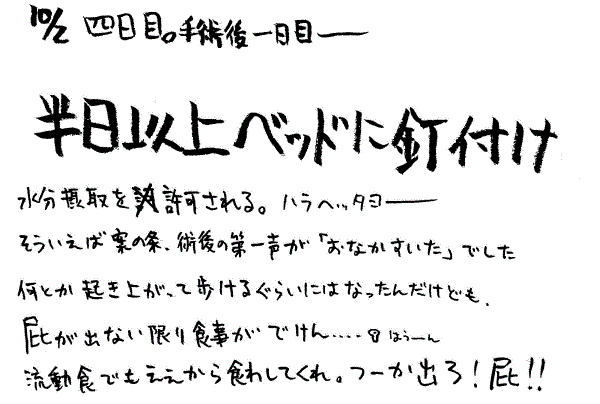 10/2 四日目。手術後一日目――
半日以上ベッドに釘付け
水分摂取を許可される。ハラヘッタヨ――
そういえば案の条、術後の第一声が「おなかすいた」でした
何とか起き上がって歩けるぐらいにはなったんだけども、
屁が出ない限り食事がでけん‥‥ はうーん
流動食でもええから食わしてくれ。つーか出ろ!屁!!